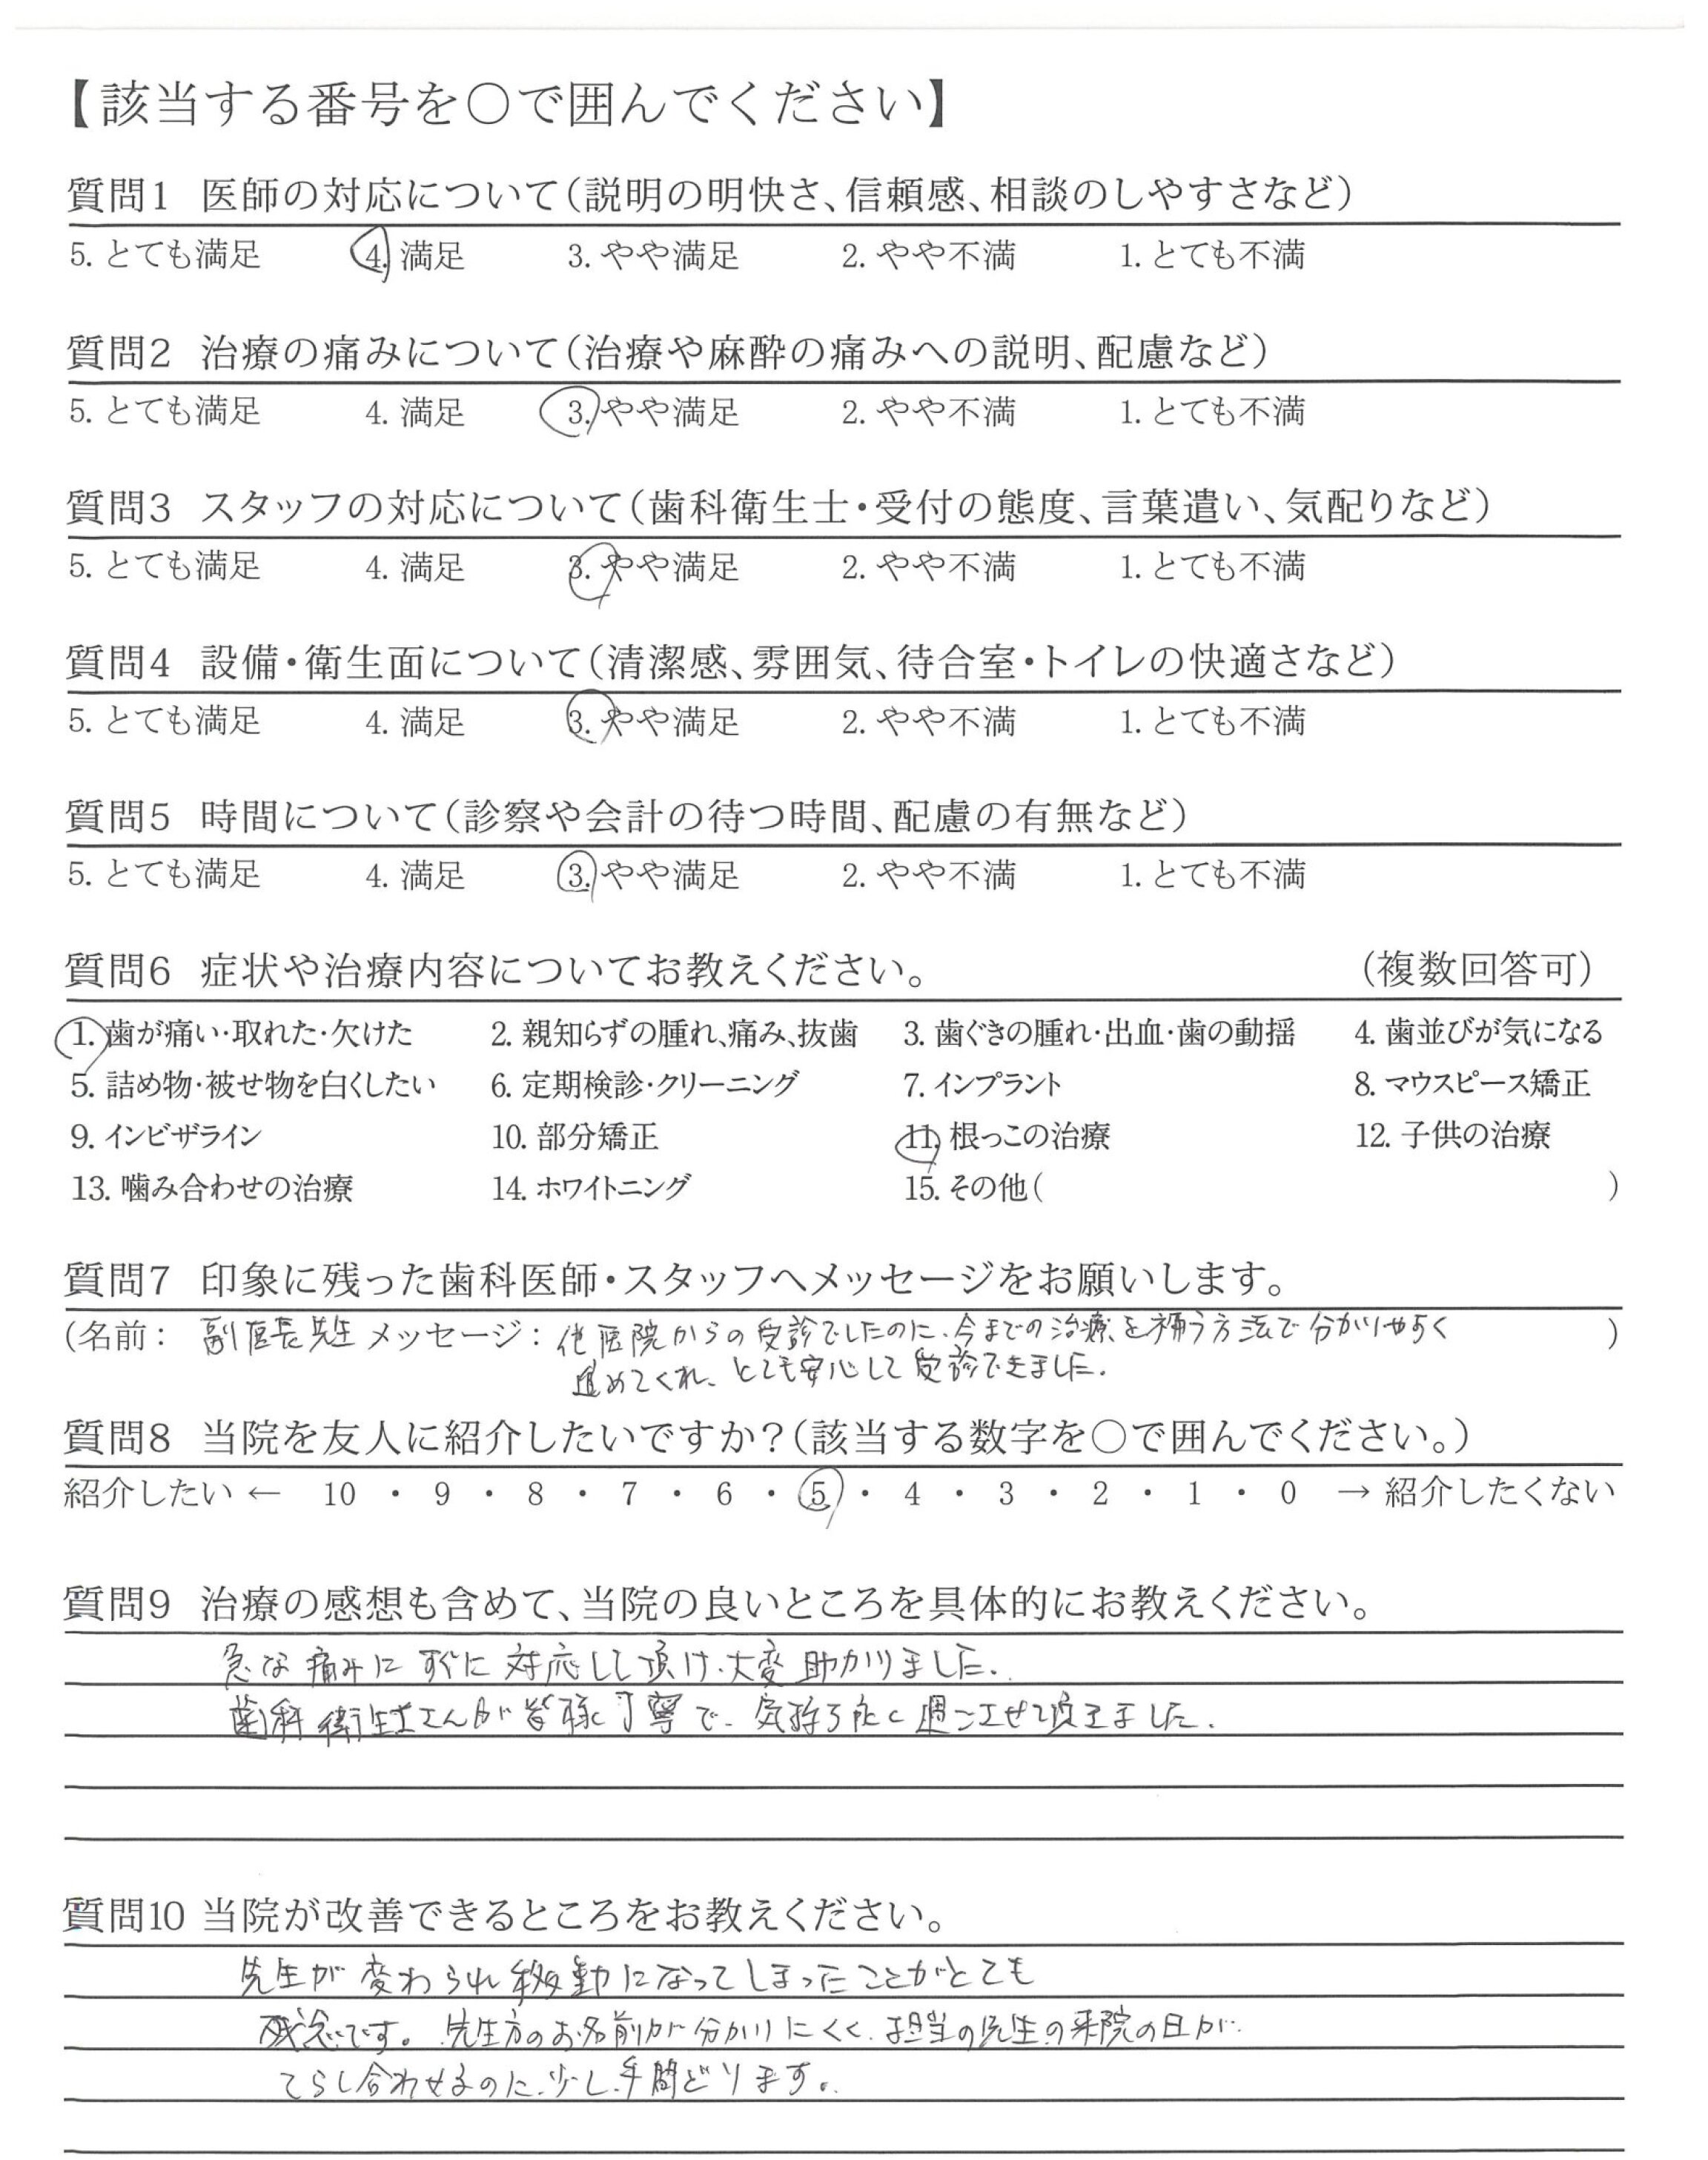 【該当する番号を〇で囲んでください】
質問1 医師の対応について(説明の明快さ、信頼感、相談のしやすさなど)
5. とても満足 4. 満足 3. やや満足 2. やや不満 1. とても不満
質問2 治療の痛みについて(治療や麻酔の痛みへの説明、配慮など)
5. とても満足 4. 満足 3. やや満足 2. やや不満 1. とても不満
質問3 スタッフの対応について(歯科衛生士・受付の態度、言葉遣い、気配りなど)
5. とても満足 4. 満足 3. やや満足 2. やや不満 1. とても不満
質問4 設備・衛生面について(清潔感、雰囲気、待合室・トイレの快適さなど)
5. とても満足 4. 満足 3. やや満足 2. やや不満 1. とても不満
質問5 時間について(診察や会計の待つ時間、配慮の有無など)
5. とても満足 4. 満足 3. やや満足 2. やや不満 1. とても不満
質問6 症状や治療内容についてお教えください。 (複数回答可)
1. 歯が痛い・取れた・欠けた 2. 親知らずの腫れ、痛み、抜歯 3. 歯ぐきの腫れ・出血・歯の動揺 4. 歯並びが気になる
5. 詰め物・被せ物を白くしたい 6. 定期検診・クリーニング 7. インプラント 8. マウスピース矯正
9. インビザライン 10. 部分矯正 11. 根っこの治療 12. 子供の治療
13. 噛み合わせの治療 14. ホワイトニング 15. その他( )
質問7 印象に残った歯科医師・スタッフへメッセージをお願いします。
(名前: 副医長先生 メッセージ: 他医院からの受診でしたのに、今までの治療を補う方法で分かりやすく )
進めてくれ、とても安心して受診できました.
質問8 当院を友人に紹介したいですか?(該当する数字を〇で囲んでください。)
紹介したい ← 10 ・ 9 ・ 8 ・ 7 ・ 6 ・ 5 ・ 4 ・ 3 ・ 2 ・ 1 ・ 0 → 紹介したくない
質問9 治療の感想も含めて、当院の良いところを具体的にお教えください。
急な痛みにすぐに対応して頂け、大変助かりました.
歯科衛生士さんが皆様丁寧で、気持ち良く過ごさせて頂きました.
質問10 当院が改善できるところをお教えください。
先生が変わられ移動になってしまったことがとても
残念です。先生方のお名前が分かりにくく、担当の先生の来院の日が
てらし合わせるのに、少し手間どります。